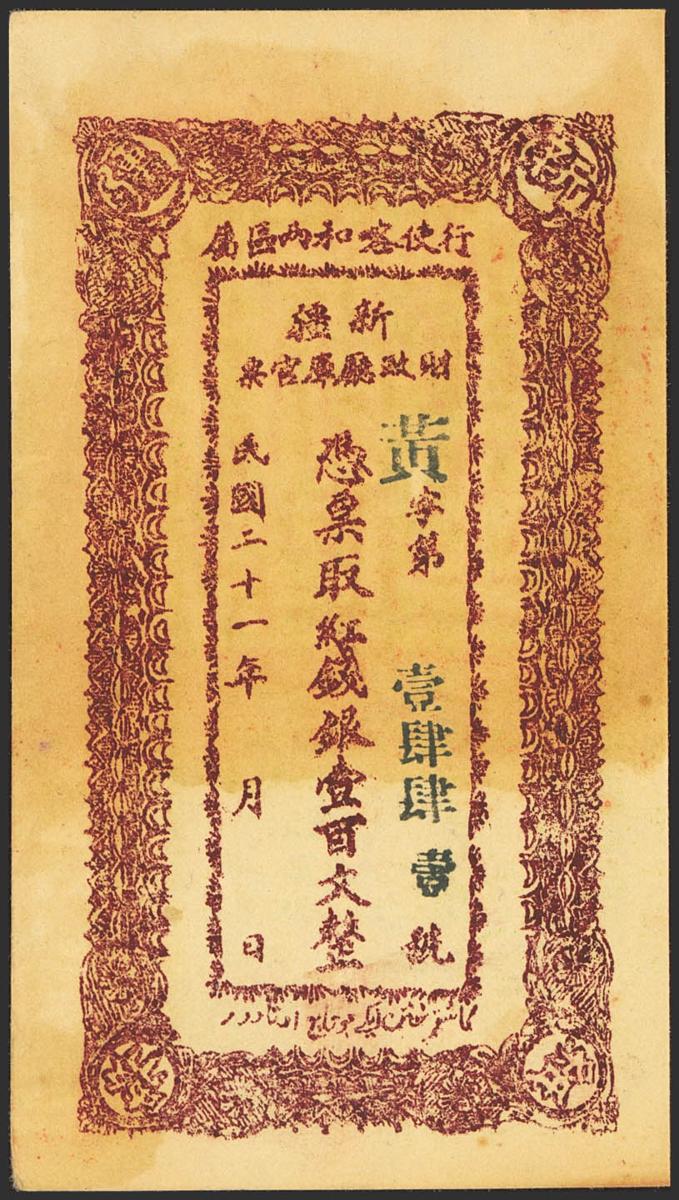 新疆
行使喀和兩區屬
新疆
財政廳庫官票
黃字第壹肆肆壹號
憑票取紅錢銀壹百文整
民國二十一年月日